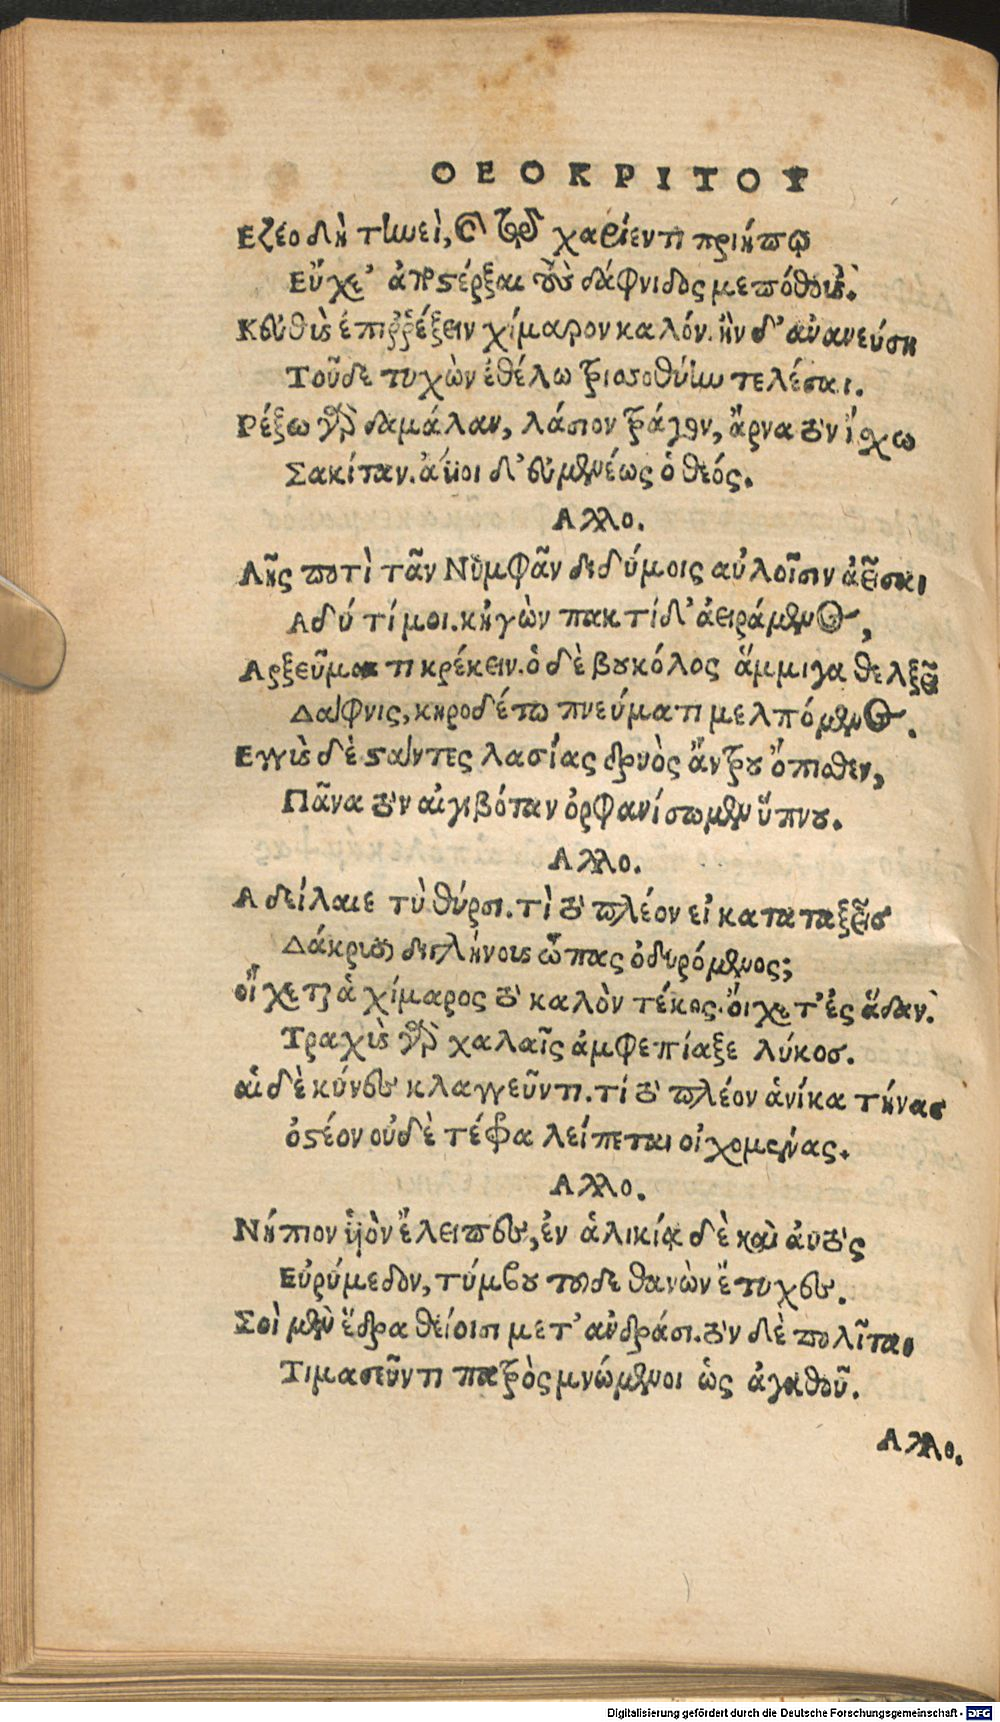 ΘΕΟΚΡΙΤΟΥ
Εζέο δὴ τηνεὶ, καὶ τῷ χαρίεντι πριήπῳ
Εὔχε' ἀποστέρξαι τοὺς δάφνιδος με πόθους.
Κεὐθὺς ἐπιῤῥέξειν χίμαρον καλόν. ἢν δ' ἀνανεύσῃ
Τοῦδε τυχὼν ἐθέλω τριοσοθύην τελέσαι.
Ρέξω γὰρ δαμάλαν, λάσιον τράγον, ἄρνα τὸν ἴσχω
Σακίταν. ἀΐοι δ' εὐμενέως ὁ θεός.
Αλλο.
Λῇς ποτὶ τᾶν Νυμφᾶν διδύμοις αὐλοῖσιν ἀεῖσαι
Αδύ τί μοι. κἠγὼν πακτίδ' ἀειράμενος,
Αρξεῦμαι τι κρέκειν. ὁ δὲ βουκόλος ἄμμιγα θελξεῖ
Δάφνις, κηροδέτῳ πνεύματι μελπόμενος.
Εγγὺς δὲ στάντες λασίας δρυὸς ἄντρου ὄπισθεν,
Πᾶνα τὸν αἰγιβόταν ὀρφανίσωμεν ὕπνου.
Αλλο.
Α δείλαιε τὺ θύρσι. τὶ τὸ πλέον εἰ καταταξεῖς
Δάκρυσι διγλήνους ὦπας ὀδυρόμενος;
οἴχεται ἁ χίμαρος τὸ καλὸν τέκος. οἴχετ' ἐς ᾅδαν.
Τραχὺς γὰρ χαλαῖς ἀμφεπίαξε λύκος.
αἱ δὲ κύνες κλαγγεῦντι. τί τὸ πλέον ἁνίκα τήνας
ὀστέον οὐδὲ τέφρα λείπεται οἰχομένας.
Αλλο.
Νήπιον ὑὸν ἔλειπες, ἐν ἁλικίᾳ δὲ καὶ αὐτὸς
Εὐρύμεδον, τύμβου τοῦδε θανὼν ἔτυχες.
Σοὶ μὲν ἕδρα θείοισι μετ' ἀνδράσι. τὸν δὲ πολῖται
Τιμασεῦντι πατρὸς μνώμενοι ὡς ἀγαθοῦ.
Αλλο.
Digitalisierung gefördert durch die Deutsche Forschungsgemeinschaft - DFG